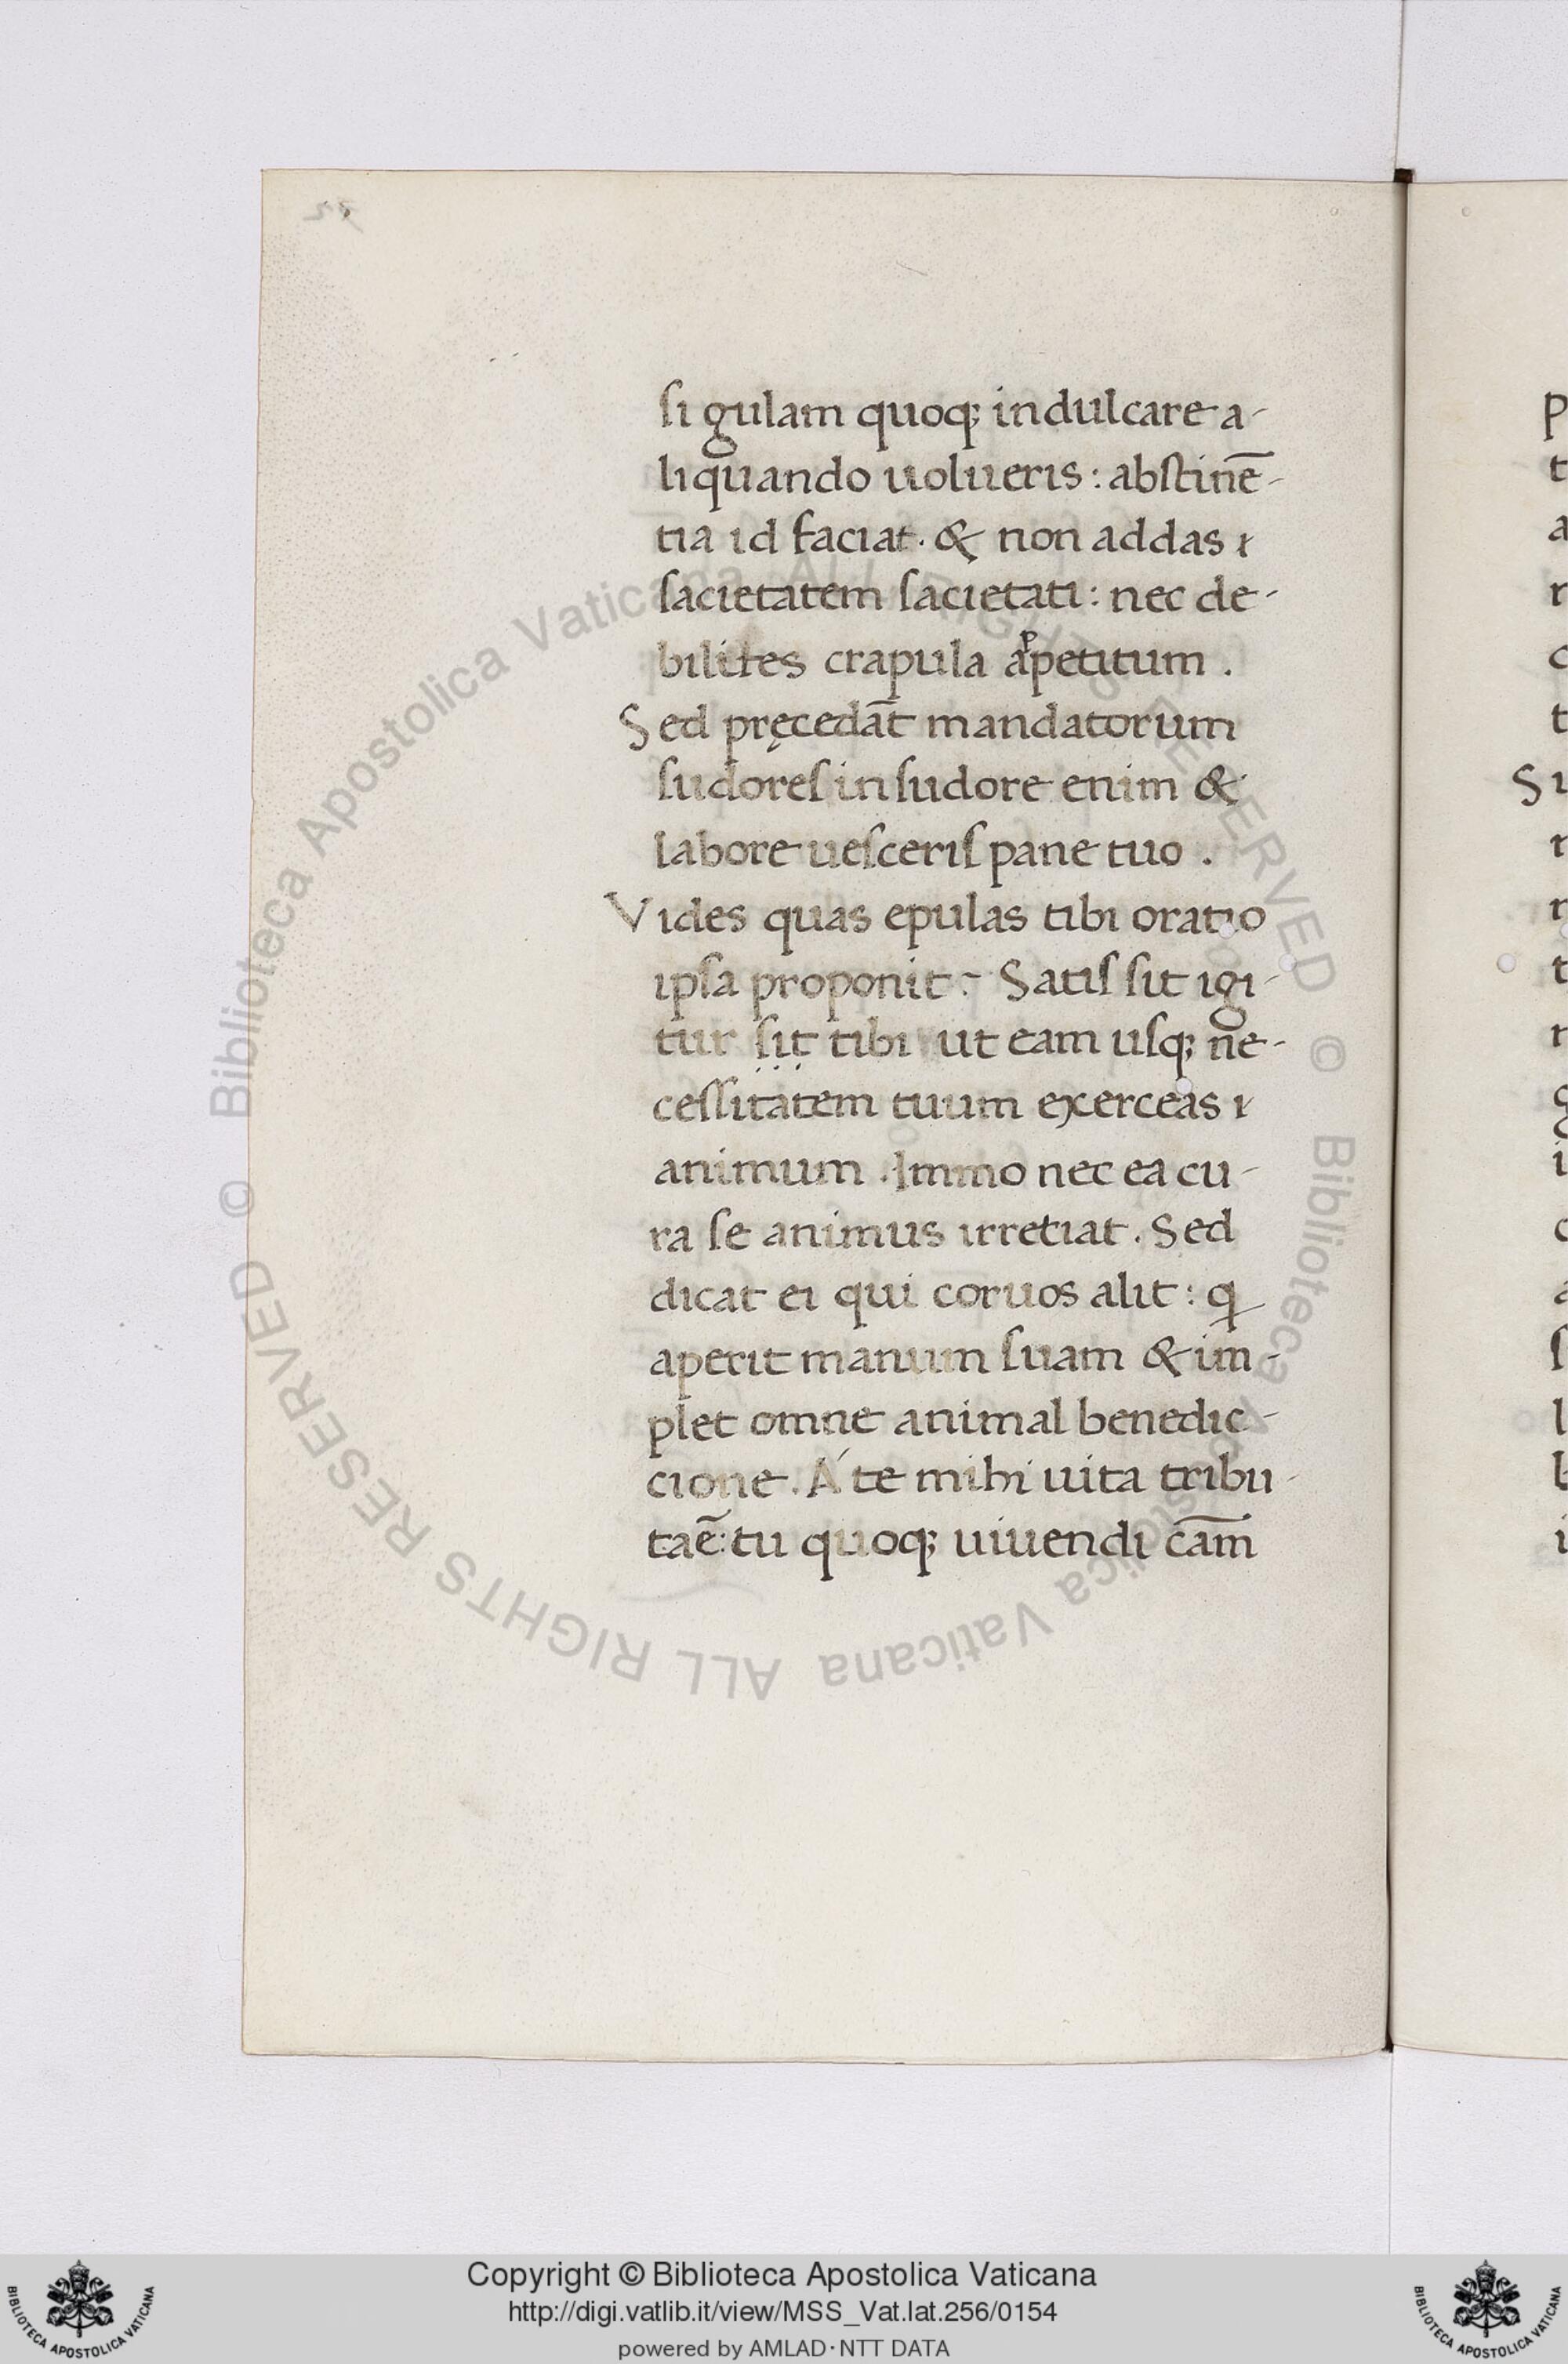 ſi gulam quoq; indulcare a-
liquando uolueris : abſtinē-
tia id faciat. & non addas
ſacietatem ſacietati : nec de-
bilites crapula appetitum .
Sed pręcedāt mandatorum
ſudoreſ in ſudore enim &
labore ueſceriſ pane tuo .
Vides quas epulas tibi oratio
ipſa proponit : Satiſ ſit igi-
tur ſit tibi ut eam uſq; ne-
ceſſitatem tuum exerceas
animum . Immo nec ea cu-
ra ſe animus irretiat . Sed
dicat ei qui coruos alit : q
aperit manum ſuam & im-
plet omne animal benedic-
cione . A te mihi uita tribu-
ta ē : tu quoq; uiuendi cām
© Biblioteca Apostolica Vaticana ALL RIGHTS RESERVED © Biblioteca Apostolica Vaticana ALL RIGHTS RESERVED
Copyright © Biblioteca Apostolica Vaticana
http://digi.vatlib.it/view/MSS_Vat.lat.256/0154
powered by AMLAD·NTT DATA
BIBLIOTECA APOSTOLICA VATICANA
BIBLIOTECA APOSTOLICA VATICANA